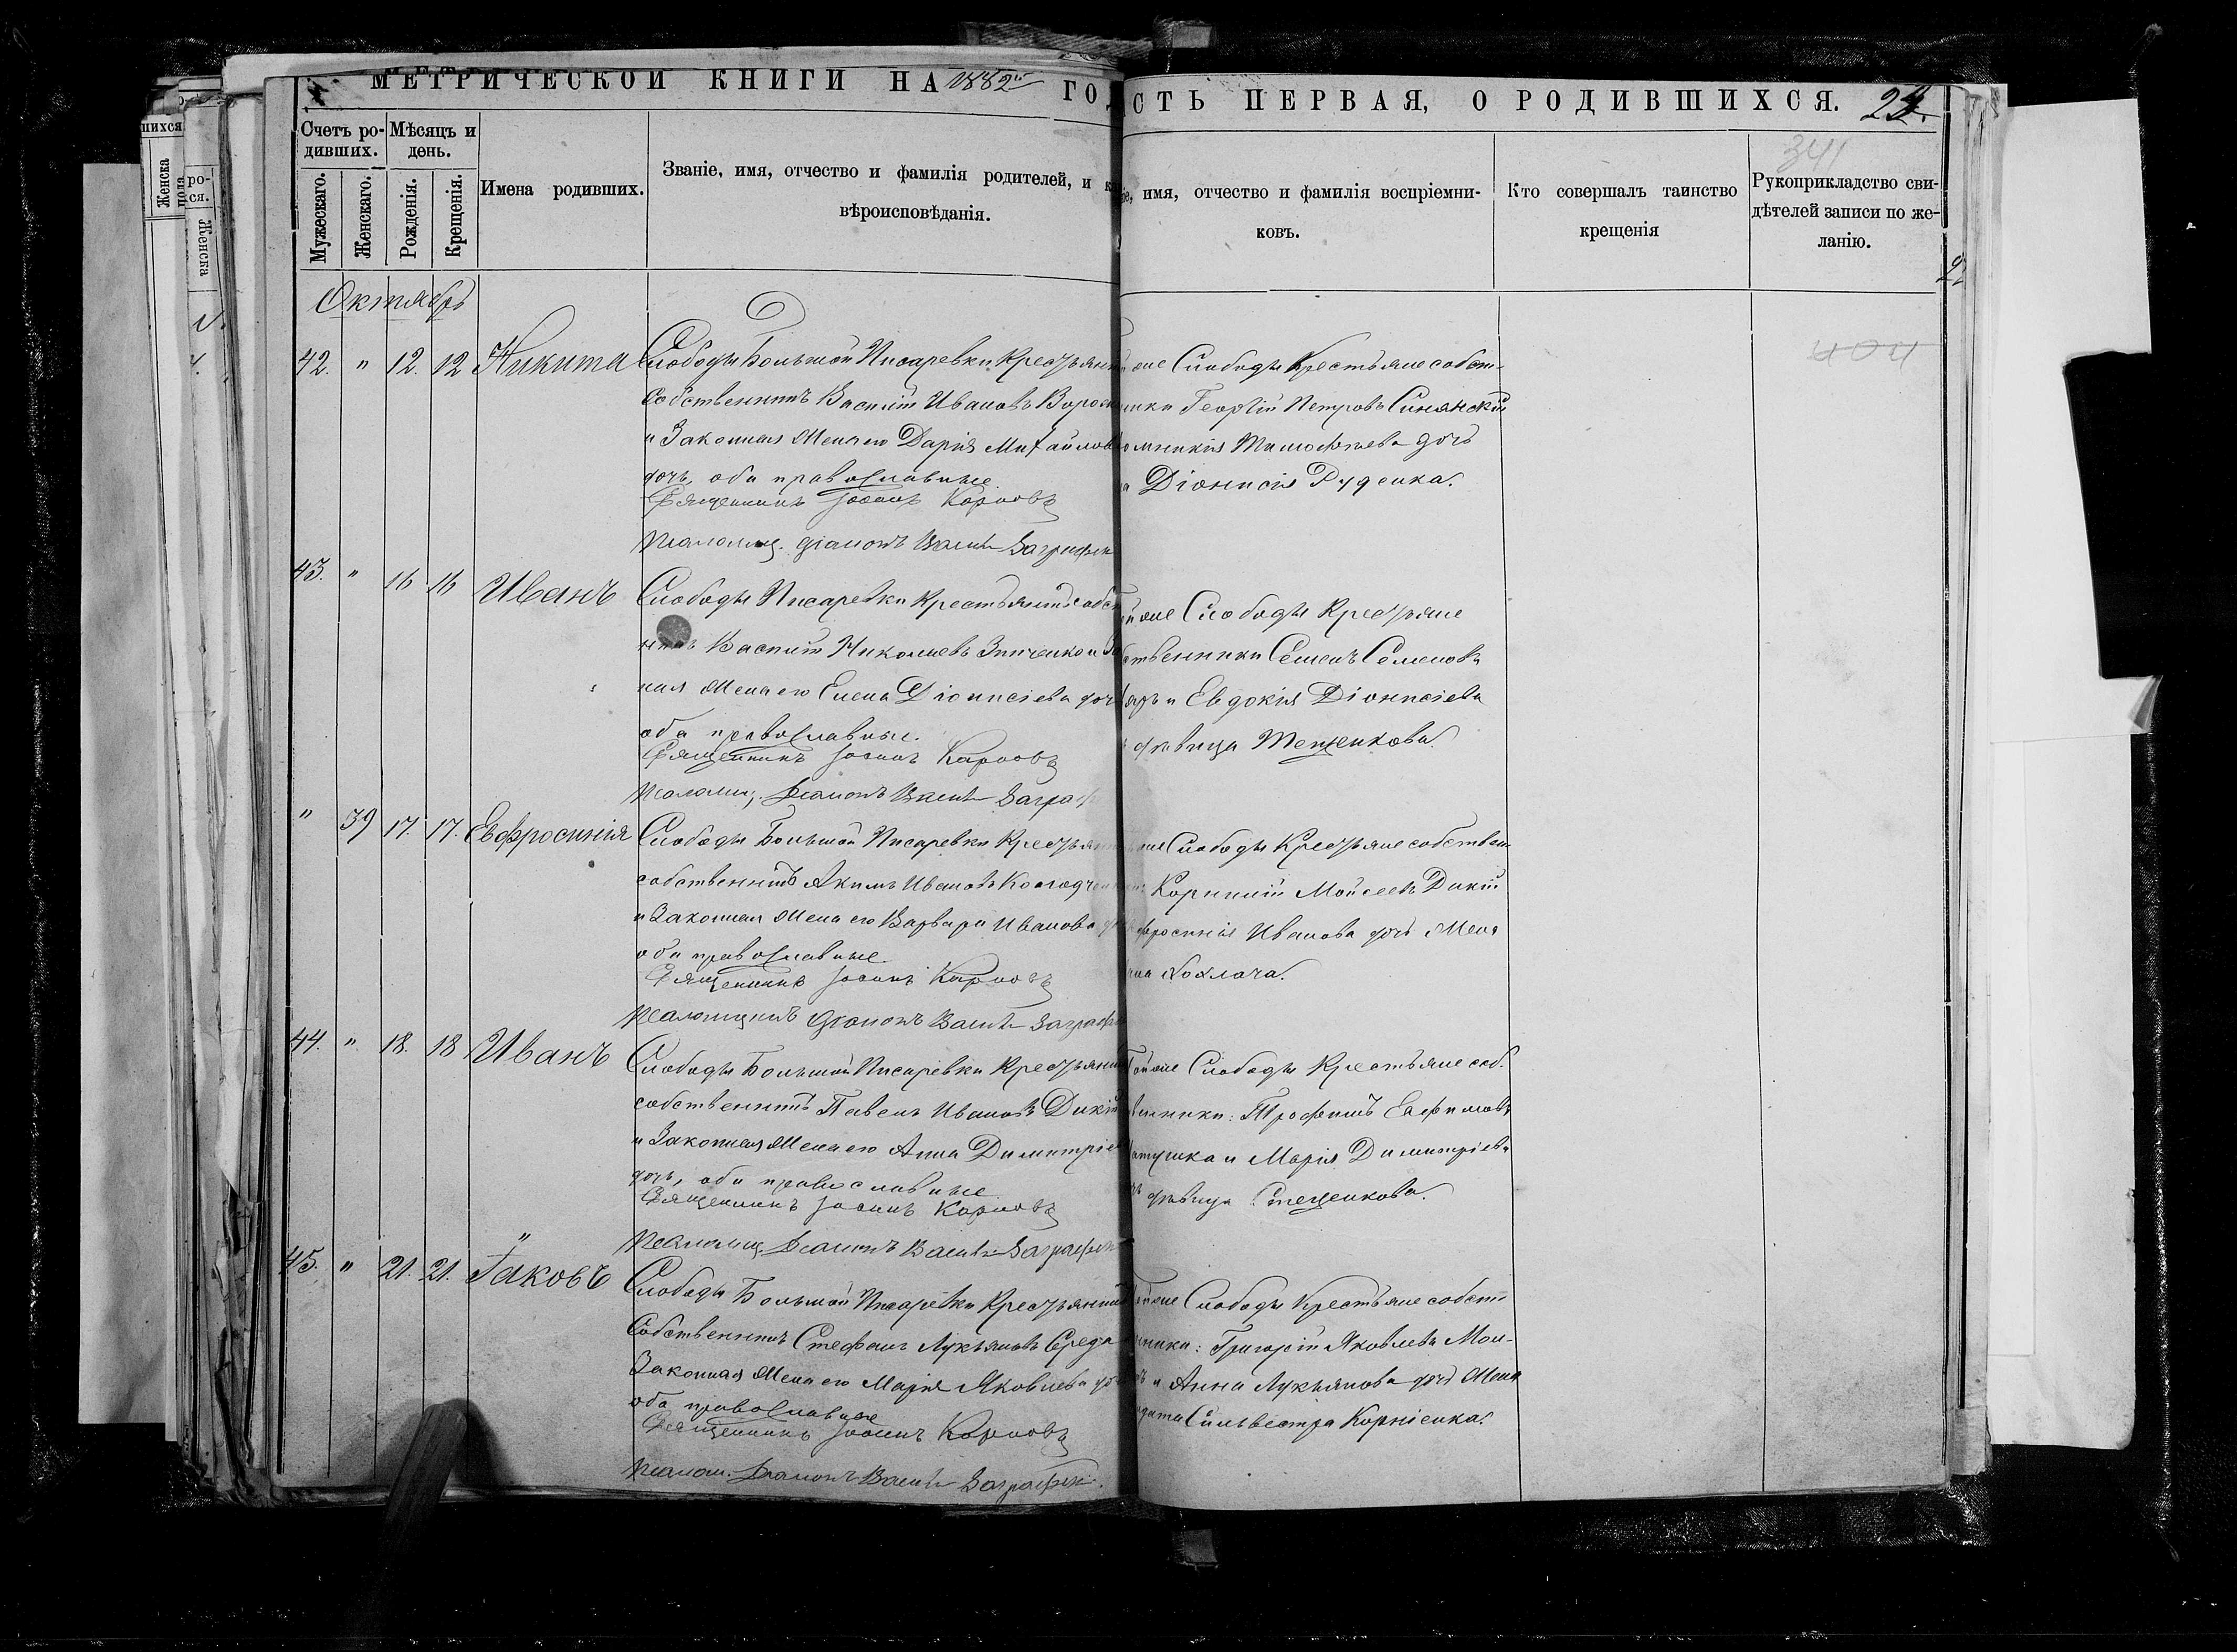 МЕТРИЧЕСКОЙ КНИГИ НА 1882й ГОД
СТЬ ПЕРВАЯ, О РОДИВШИХСЯ.
341
Счетъ ро-
дивших.
Мѣсяцъ и
день.
Мужескаго.
Женскаго.
Рожденія.
Крещенія.
Имена родивших.
Званіе, имя, отчество и фамилія родителей, и к
вѣроисповѣданія.
іе, имя, отчество и фамилія воспріемни-
ковъ.
Кто совершалъ таинство
крещенія
Рукоприкладство сви-
дѣтелей записи по же-
ланію.
Октябрь
404
42. " 12. 12 Никита
Слободы Большой Писаревки Крестьянин
Собственникъ Василій Ивановъ
и Законная Жена его Дарія Михайлов
дочь, оба православные.
Священникъ Іоаннъ Карповъ
Псаломщ. діаконъ
ѣ же Слободы Крестьяне собст-
нники Георгій Петровъ Синянскій
омникія Тимофѣева дочь
а Діонисія Руденка.
43. " 16 16 Иванъ
Слободы Писаревки Крестьянинъ собст
никъ Василій Николаевъ Зинченко и За
ная Жена его Елена Діонисіева доч
оба православные.
Священникъ Іоаннъ Карповъ
Псаломщ. Діаконъ
й же Слободы Крестьяне
ственники Семенъ Семеновъ
арь и Евдокія Діонисіева
ь дѣвица Тещенкова.
" 39 17. 17. Евфросинія
Слободы Большой Писаревки Крестьян
собственникъ Акимъ Ивановъ Колодче
и Законная Жена его Варвара Иванова д
оба православные.
Священникъ Іоаннъ Карповъ
Псаломщикъ діаконъ
же Слободы Крестьяне собствен-
Корнилій Моисеевъ Дикій
фросинія Иванова дочь Жена
на Хохлача.
44. " 18. 18 Иванъ
Слободы Большой Писаревки Крестьянин
собственникъ Павелъ Ивановъ Дикій
и Законная Жена его Анна Димитріев
дочь, оба православные.
Священникъ Іоаннъ Карповъ
Псаломщ. Діаконъ
Той же Слободы Крестьяне соб.
венники: Трофимъ Евфимовъ
атушка и Марія Димитріева
ь дѣвица Стеценкова.
45. " 21. 21. Іаковъ
Слободы Большой Писаревки Крестьянин
Собственникъ Стефанъ Лукьяновъ Середа
Законная Жена его Марія Яковлева до
оба православные
Священникъ Іоаннъ Карповъ
Псалом. Діаконъ
ой же Слободы Крестьяне собст
нники: Григорій Яковлевъ Мои-
ъ и Анна Лукьянова дочь Жена
Сильвестра Корніенка.